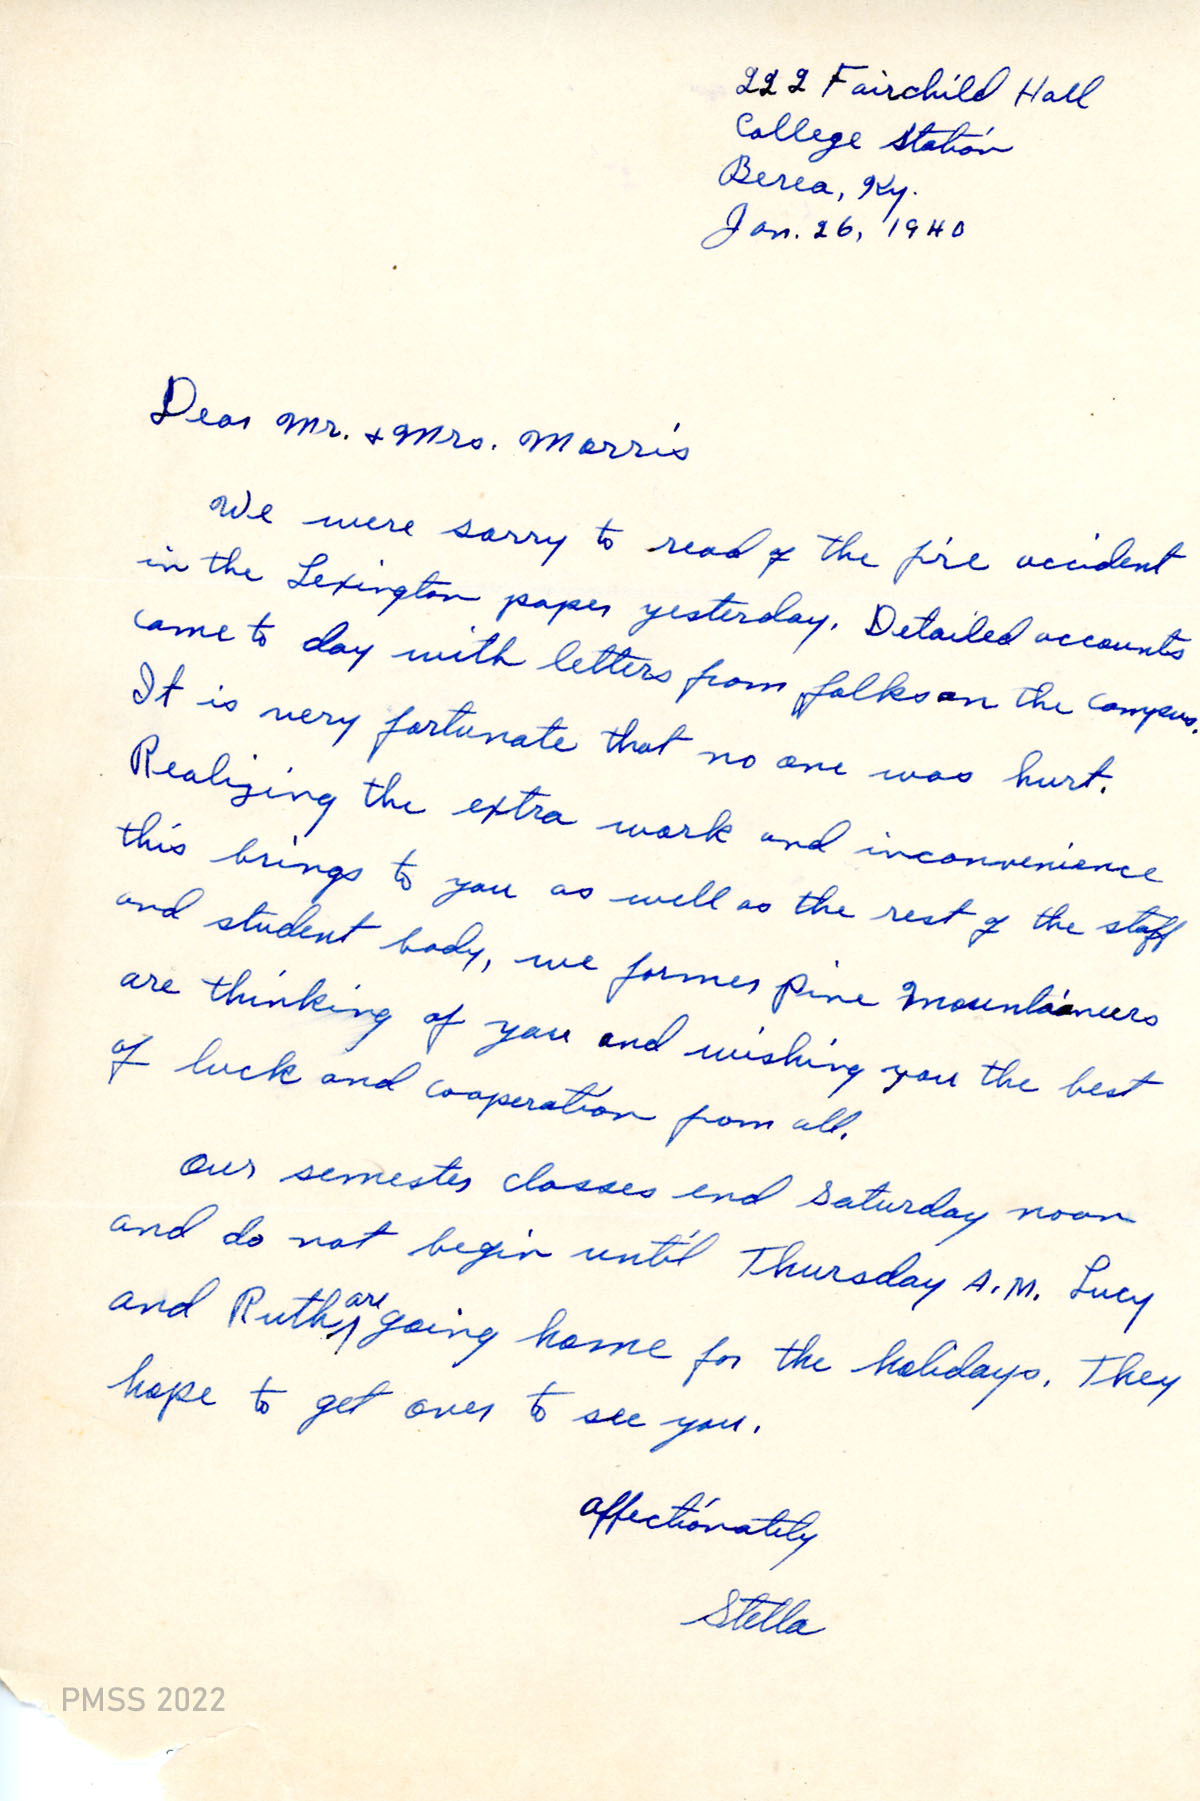 222 Fairchild Hall
College Station
Berea, Ky.
Jan. 26, 1940
Dear Mr. + Mrs. Morris
We were sorry to read of the fire accident
in the Lexington paper yesterday. Detailed accounts
came to day with letters from folks on the campus.
It is very fortunate that no one was hurt.
Realizing the extra work and inconvenience
this brings to you as well as the rest of the staff
and student body, we former Pine Mountaineers
are thinking of you and wishing you the best
of luck and cooperation from all.
Our semester classes end Saturday noon
and do not begin until Thursday A.M. Lucy
and Ruth are going home for the holidays. They
hope to get over to see you.
Affectionately
Stella
PMSS 2022